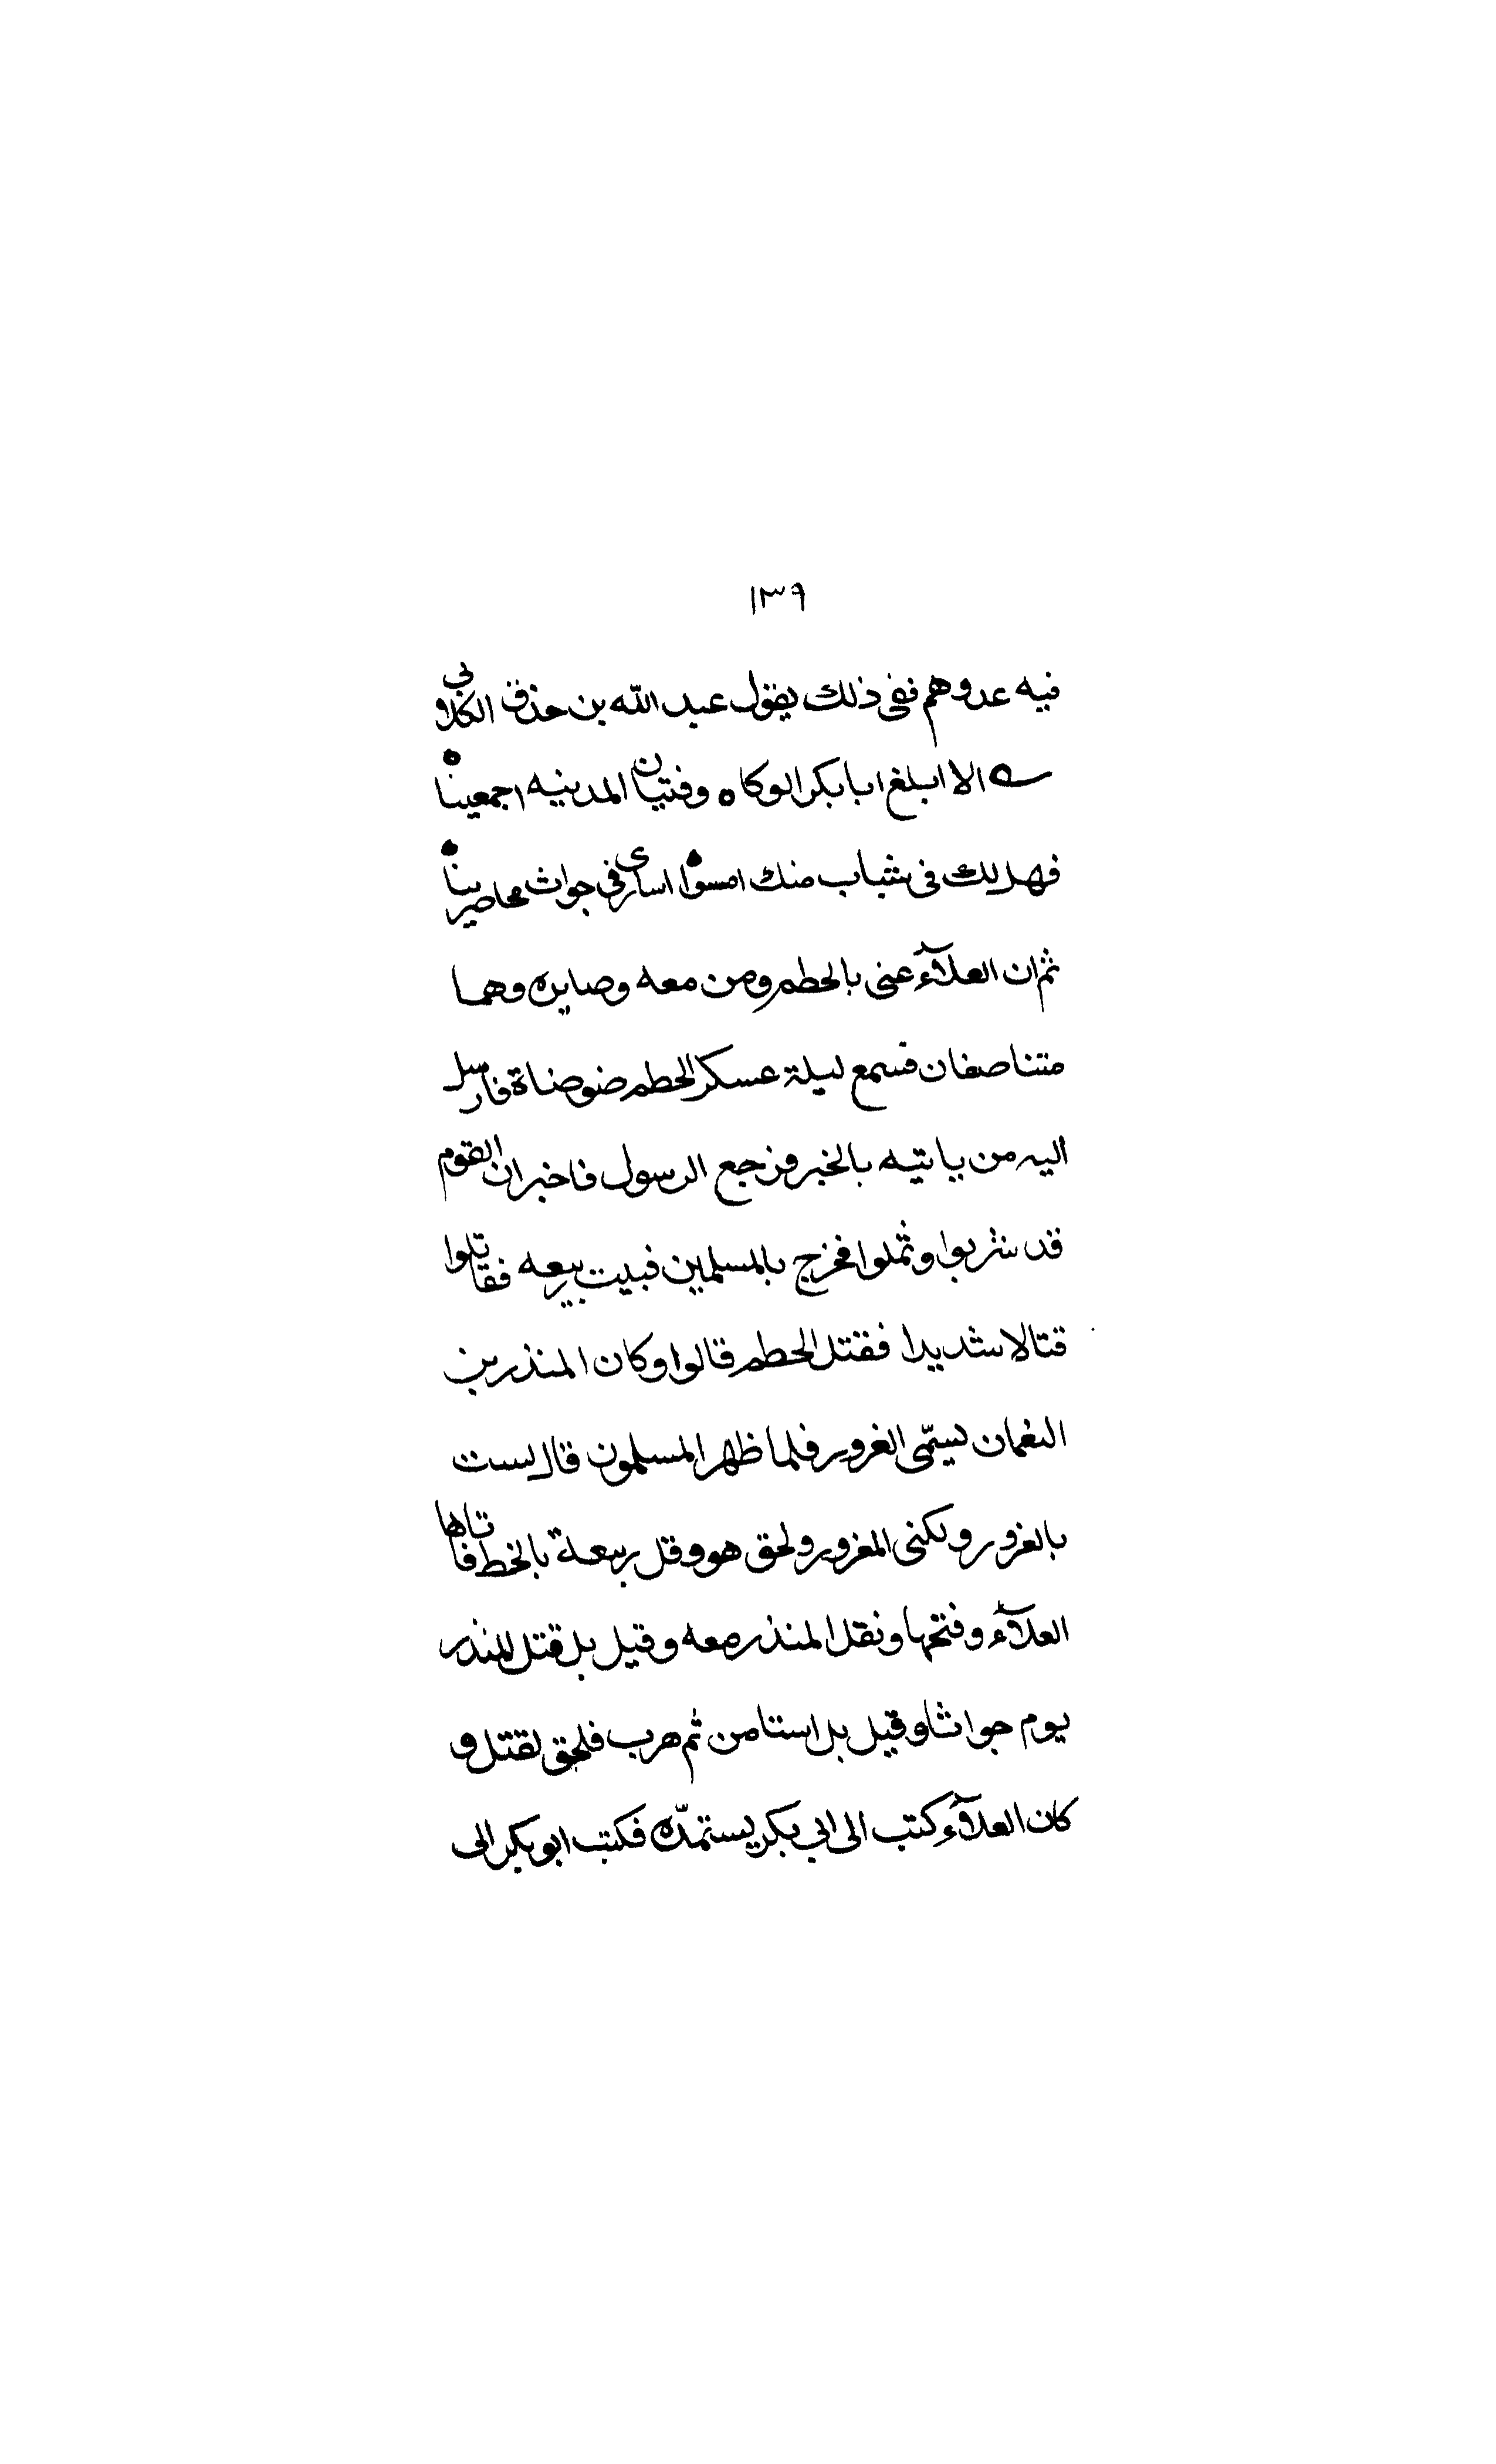 ١٣٩
فيه عدوهم ففى ذلك يقول عبد الله بن حذق الكلابي
الا ابلغ ابا بكر الوكاه وفتيان المدينه اجمعينا
فهل لك فى شباب منك امسوا اسارى فى جواث محاصرينا
ثم ان العلآء عنى بالحطم ومن معه وصابره وهما
متناصفان فسمع ليلة عسكر الحطم ضوضاة فارسل
اليه من ياتيه بالخبر فرجع الرسول فاخبر ان القوم
قد شربوا وثملوا فخرج بالمسلمين فبيت ربيعه فقاتلوا
قتالا شديدا فقتل الحطم قالوا وكان المنذر بن
النعمان يسمّى الغرور فلما ظهر المسلمون قال لست
بالغرور ولكنى المغرور ولحق هو وفل ربيعة بالخط فاتاها
العلآء وفتحها ونقل المنذر معه وقيل بل قتل المنذر
يوم جواثا وقيل بل استامن ثم هرب فلحق فقتل و
كان العلآء كتب الى ابي بكر يستمدّه فكتب ابو بكر الى